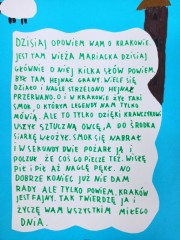 DZISIAJ OPOWIEM WAM O KRAKOWIE.
JEST TAM WIEŻA MARIACKA DZISIAJ
GŁÓWNIE O NIEJ KILKA SŁÓW POWIEM.
BYŁ TAM HEJNAŁ GRANY. WIELE SIĘ
DZIAŁO I NAGLE STRZELONO HEJNAŁ
PRZERWANO. O I W KRAKOWIE ŻYŁ TAKI
SMOK, O KTÓRYM LEGENDY NAM TYLKO
MÓWIĄ. ALE TO TYLKO DZIĘKI KRAWCZYKOWI
USZYŁ SZTUCZNĄ OWCĘ, A DO ŚRODKA
SIARKĘ WŁOŻYŁ. SMOK SIĘ NABRAŁ
I W SEKUNDY DWIE POŻARŁ JĄ I
POCZUŁ ŻE COŚ GO PIECZE TEŻ. WISŁĘ
PIŁ I PIŁ AŻ NAGLE PĘKŁ. NO
DOBRZE KOŃCZĘ JUŻ NIE DAM
RADY. ALE TYLKO POWIEM, KRAKÓW
JEST FAJNY. TAK TWIERDZĘ JA I
ŻYCZĘ WAM WSZYSTKIM MIŁEGO
DNIA.